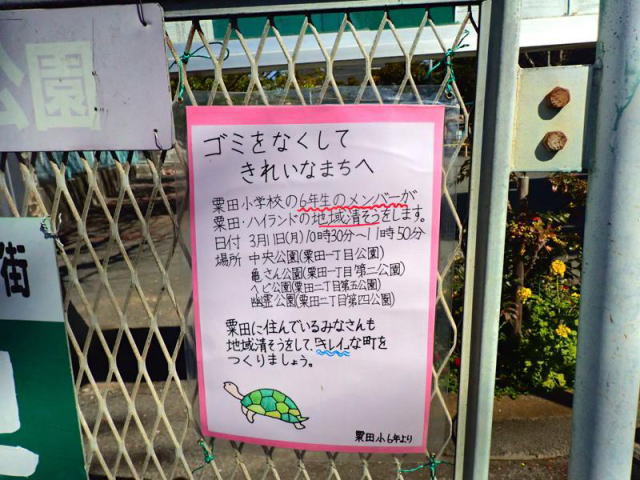 公園
街
ゴミをなくして
きれいなまちへ
粟田小学校の6年生のメンバーが
粟田・ハイランドの地域清そうをします。
日付 3月1日(月)10時30分〜11時50分
場所 中央公園(粟田一丁目公園)
亀さん公園(粟田一丁目第二公園)
ヘビ公園(粟田二丁目第五公園)
幽霊公園(粟田二丁目第四公園)
粟田に住んでいるみなさんも
地域清そうをして、キレイな町を
つくりましょう。
粟田小6年より